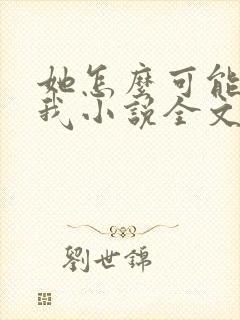 她怎麼可能
我小說全文
劉世錦